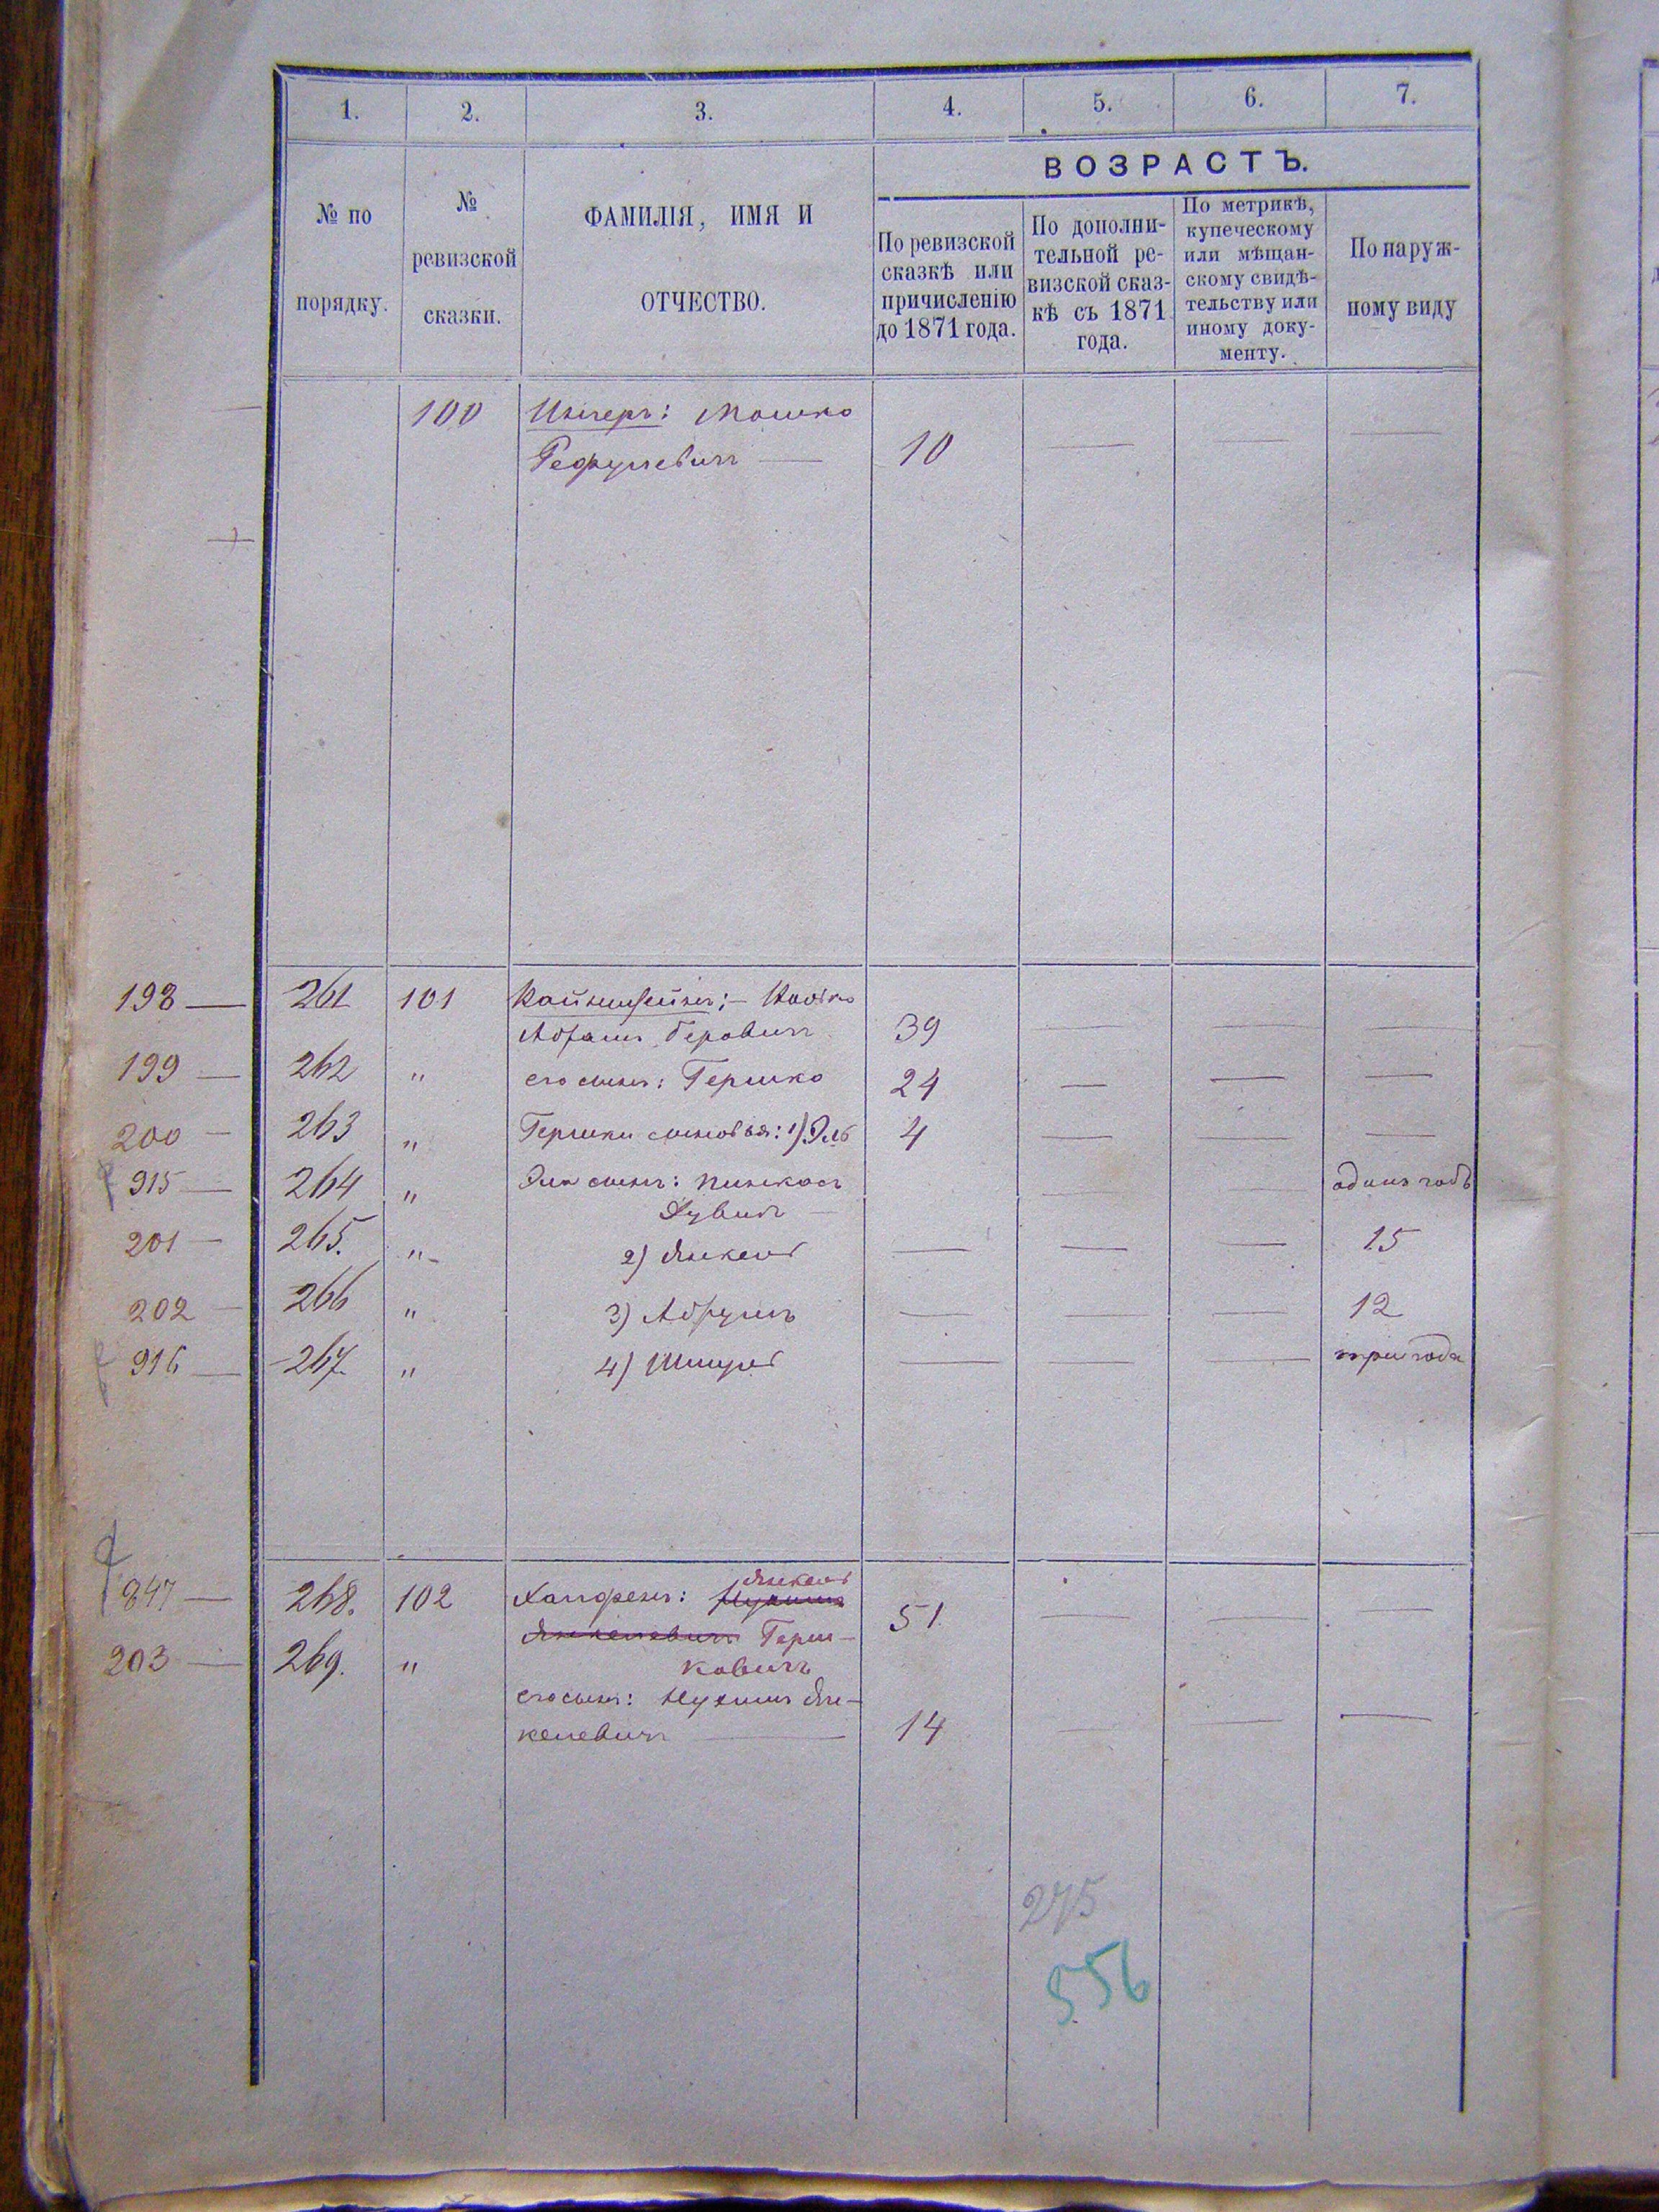 1. 2. 3. 4. 5. 6. 7.
№ по порядку.
№ ревизской сказки.
ФАМИЛІЯ, ИМЯ И ОТЧЕСТВО.
ВОЗРАСТЪ.
По ревизской
сказкѣ или
причисленію
до 1871 года.
По дополни-
тельной ре-
визской сказ-
кѣ съ 1871
года.
По метрикѣ,
купеческому
или мѣщан-
скому свидѣ-
тельству или
иному доку-
менту.
По наруж-
ному виду
100 Мошко
10
198 — 261 101
39
199 — 262 " его сынъ: Гершко 24
200 — 263 " Гершки сыновья: 1) Эль 4
915 — 264 " Эля сынъ: Пинкасъ одинъ годъ
201 — 265. " 2) Янкель 15
202 — 266 " 3) Абрумъ 12
916 — 267. " 4) Шмуль три года
847 — 268. 102 Янкель 51
Янкелевичъ Герш-
203 — 269. " ковичъ
его сынъ: Нухимъ Ян-
келевичъ — 14
275
556